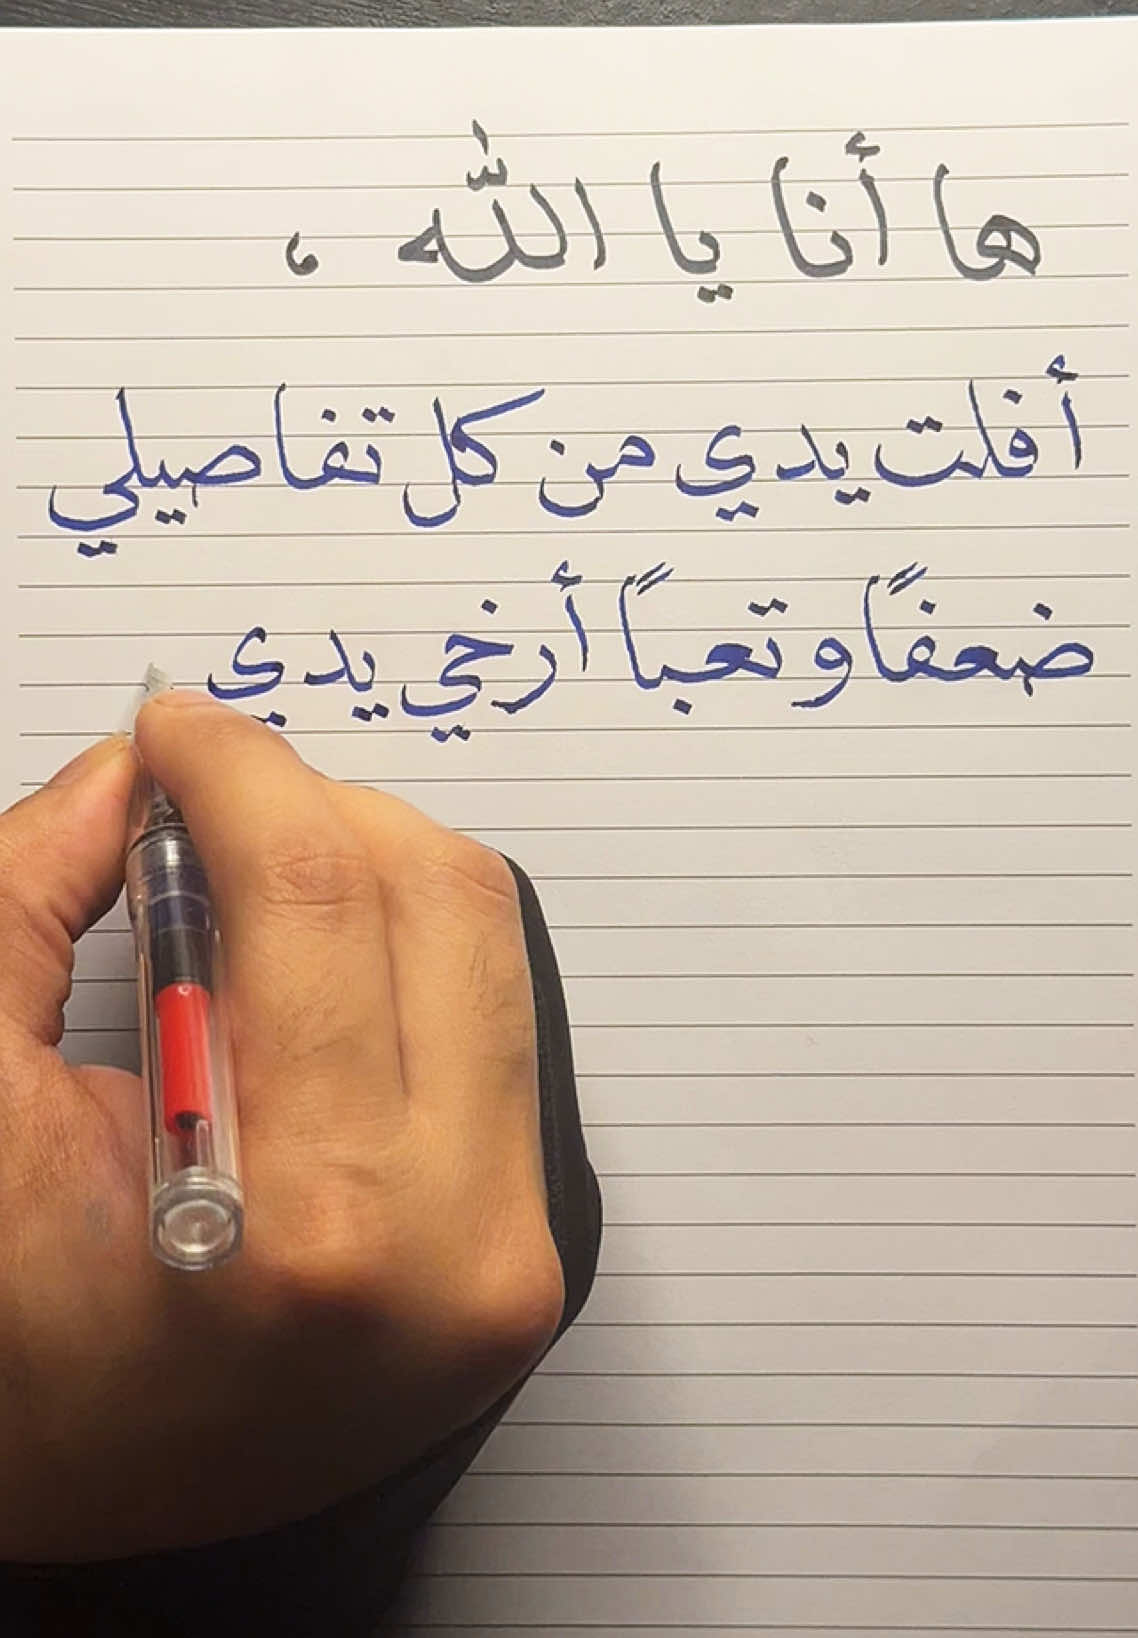 ها أنا يا اللّٰه ،
أفلت يدي من كل تفاصيلي
ضعفاً وتعباً أرخي يدي